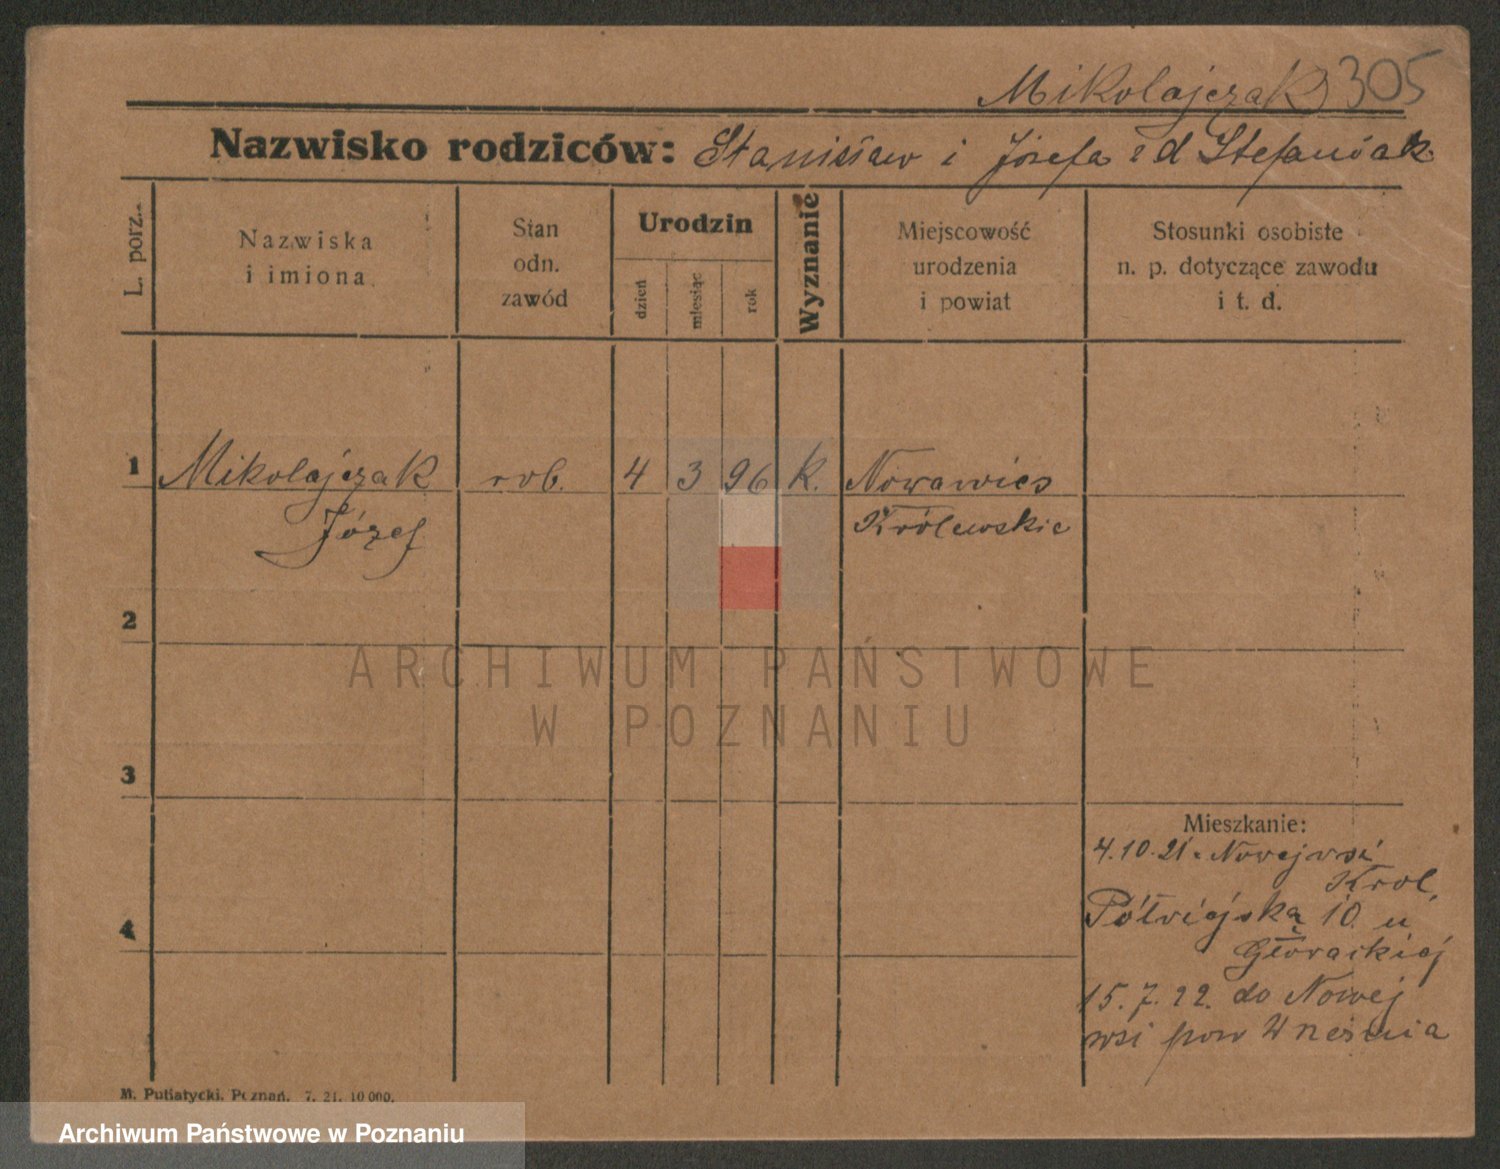 Mikołajczak 305
Nazwisko rodziców: Stanisław i Józefa z d Stefaniak
L. porz.
Nazwiska
i imiona
Stan
odn.
zawód
Urodzin
dzień
miesiąc
rok
Wyznanie
Miejscowość
urodzenia
i powiat
Stosunki osobiste
n. p. dotyczące zawodu
i t. d.
1 Mikołajczak rob. 4 3 96 k. Nowawies
Józef Królewskie
2
ARCHIWUM PAŃSTWOWE
W POZNANIU
3
Mieszkanie:
4.10.21. Nowejwsi
Krol.
4 Półwiejska 10. u
15.7.22. do Nowej
wsi pow Wneśnia
M. Putiatycki. Poznań. 7. 21. 10 000.
Archiwum Państwowe w Poznaniu